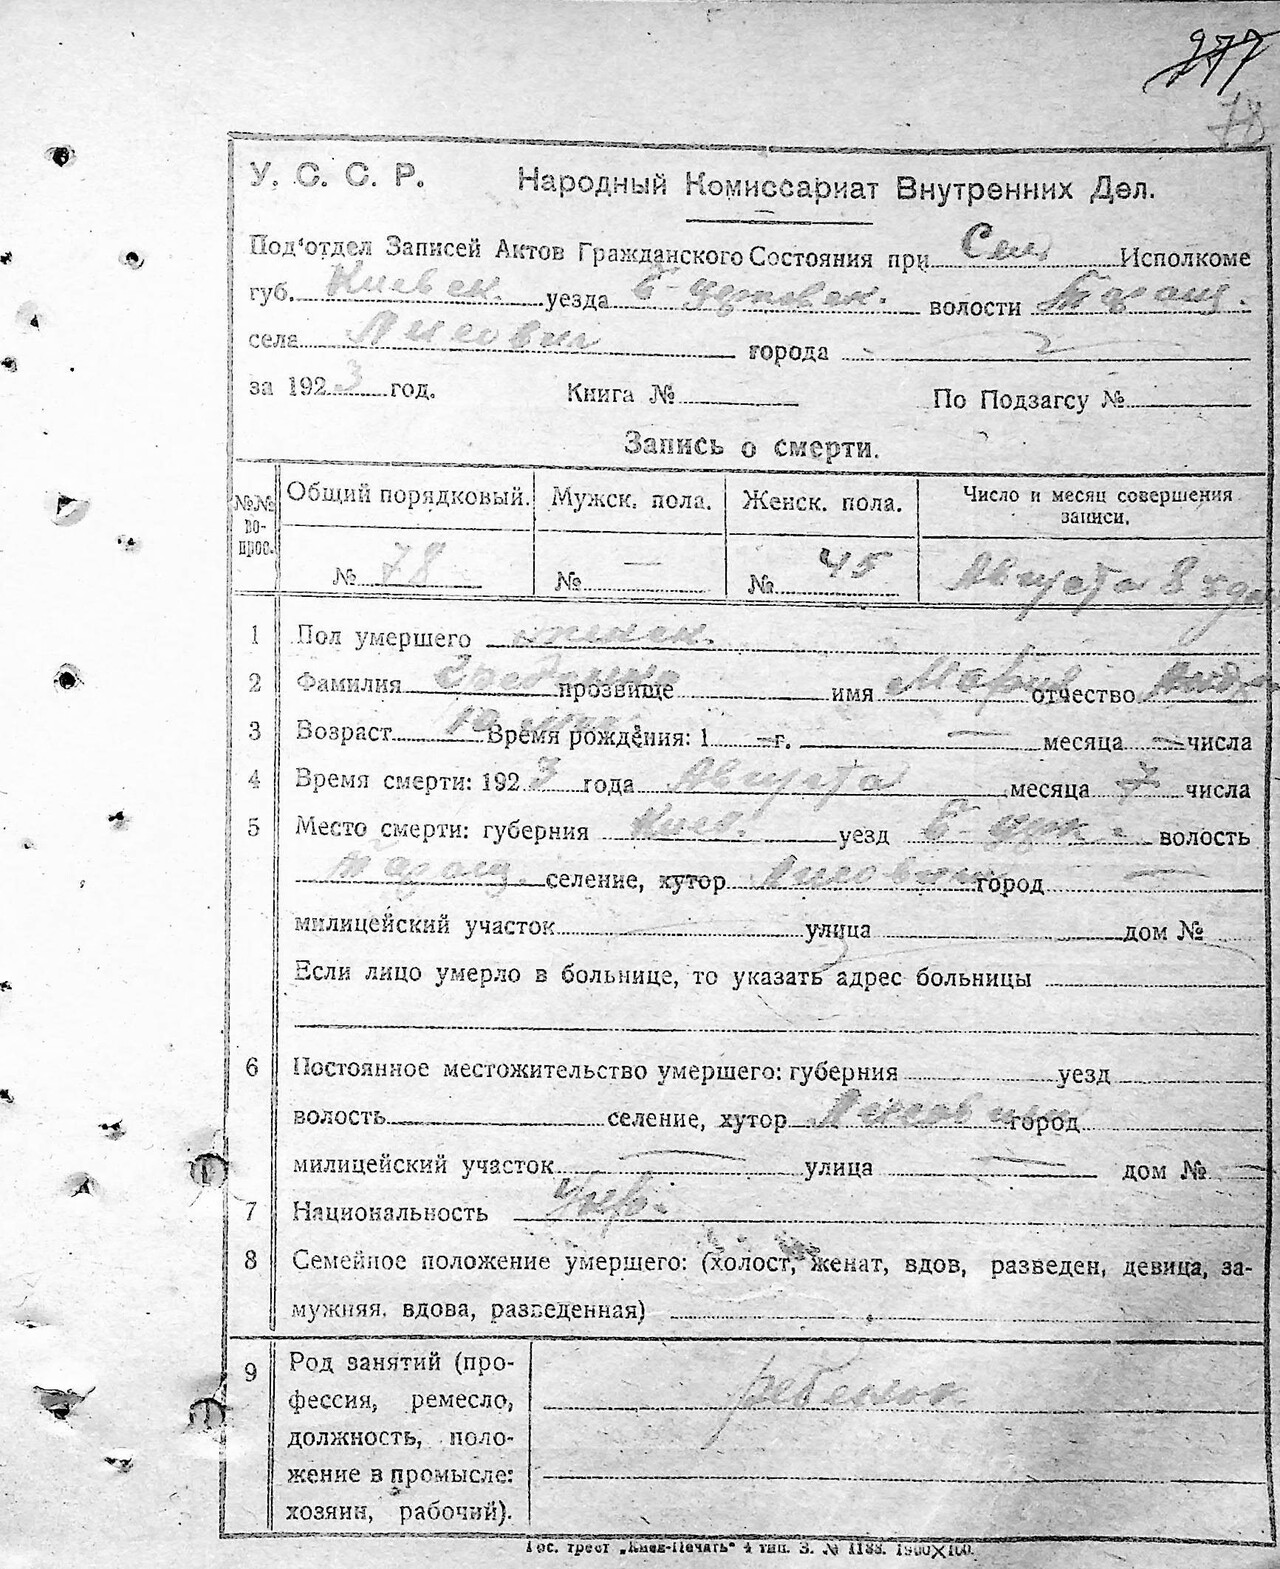 277
78
У. С. С. Р. Народный Комиссариат Внутренних Дел.
Под'отдел Записей Актов Гражданского Состояния при Сель Исполкоме
губ. Киевск. уезда Б-Церковск. волости Таращ.
села Лисович города
за 1923 год. Книга № По Подзагсу №
Запись о смерти.
№№ вопрос. Общий порядковый. Мужск. пола. Женск. пола. Число и месяц совершения записи.
№ 78 № — № 45 Августа 8 дня
1 Пол умершего женск.
2 Фамилия прозвище имя Мария отчество
3 Возраст 10 Время рождения: 1 — г. — месяца — числа
4 Время смерти: 1923 года Августа месяца 7 числа
5 Место смерти: губерния Киев. уезд Б-Церк. волость
Таращ. селение, хутор Лисовичи город —
милицейский участок улица дом №
Если лицо умерло в больнице, то указать адрес больницы
6 Постоянное местожительство умершего: губерния уезд
волость селение, хутор Лисовичи город
милицейский участок — улица — дом № —
7 Национальность Укр.
8 Семейное положение умершего: (холост, женат, вдов, разведен, девица, за-
мужняя, вдова, разведенная)
9 Род занятий (про-
фессия, ремесло,
должность, поло-
жение в промысле:
хозяин, рабочий).
ребенок
Гос. трест „Киев-Печать" 4 тип. З. № 1188. 1900×100.